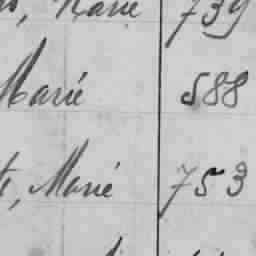 Marie 739
Marié 588
, Marié 753